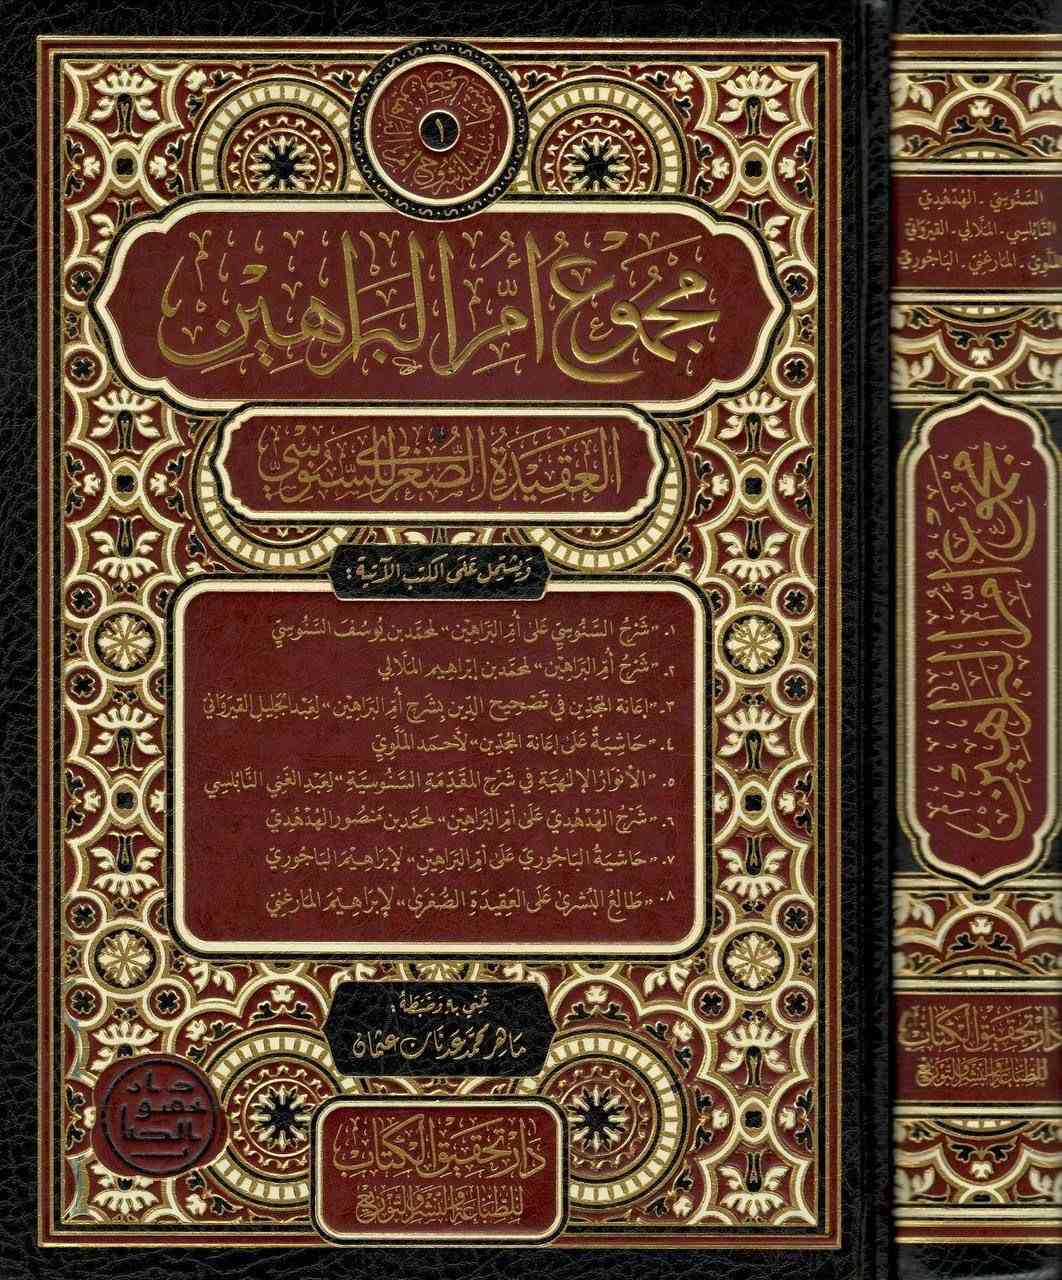 ١
مجموع أم البراهين
العقيدة الصغرى للسنوسي
ويشتمل على الكتب الآتية:
١. «شرح السنوسي على أم البراهين» لمحمد بن يوسف السنوسي
٢. «شرح أم البراهين» لمحمد بن إبراهيم الملالي
٣. «إعانة المجدين في تصحيح الدين بشرح أم البراهين» لعبد الجليل القيرواني
٤. «حاشية على إعانة المجدين» لأحمد الملوي
٥. «الأنوار الإلهية في شرح المقدمة السنوسية» لعبد الغني النابلسي
٦. «شرح الهدهدي على أم البراهين» لمحمد بن منصور الهدهدي
٧. «حاشية الباجوري على أم البراهين» لإبراهيم الباجوري
٨. «طالع البشرى على العقيدة الصغرى» لإبراهيم المارغني
عني به وضبطه:
ماهر محمد عدنان عثمان
دار تحقيق الكتاب
للطباعة والنشر والتوزيع
دار تحقيق الكتاب
السنوسي - الهدهدي
النابلسي - الملالي - القيرواني
الملوي - المارغني - الباجوري
مجموع أم البراهين
دار تحقيق الكتاب
للطباعة والنشر والتوزيع